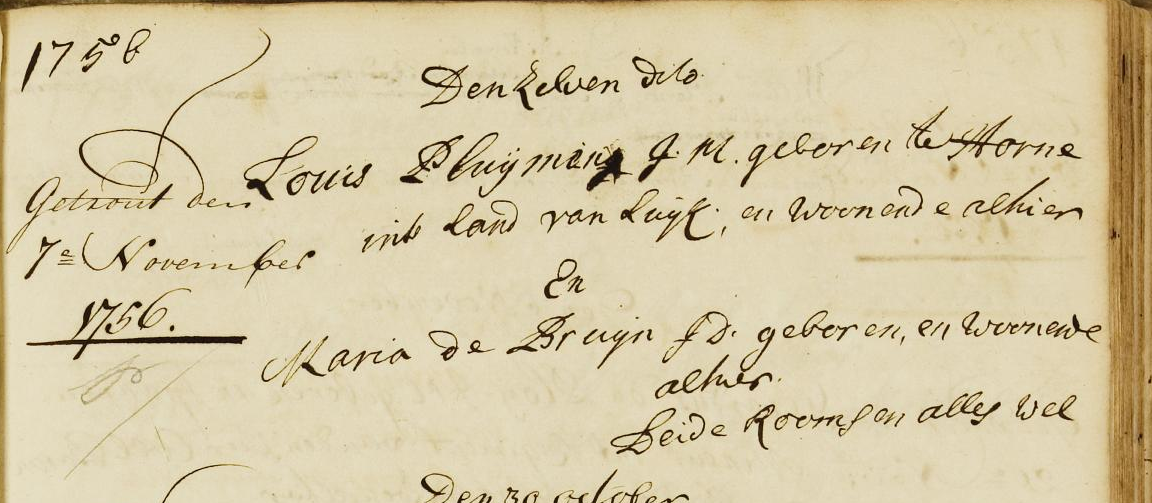 1756
Den Zelven dito
Louis Pluymen J. M. geboren te Horne
int Land van Luyk, en woonende alhier
Getrout den
7e November
1756.
En
Maria de Bruyn J D. geboren, en woonende
alhier.
Beide Rooms en alles wel
Den 30 october